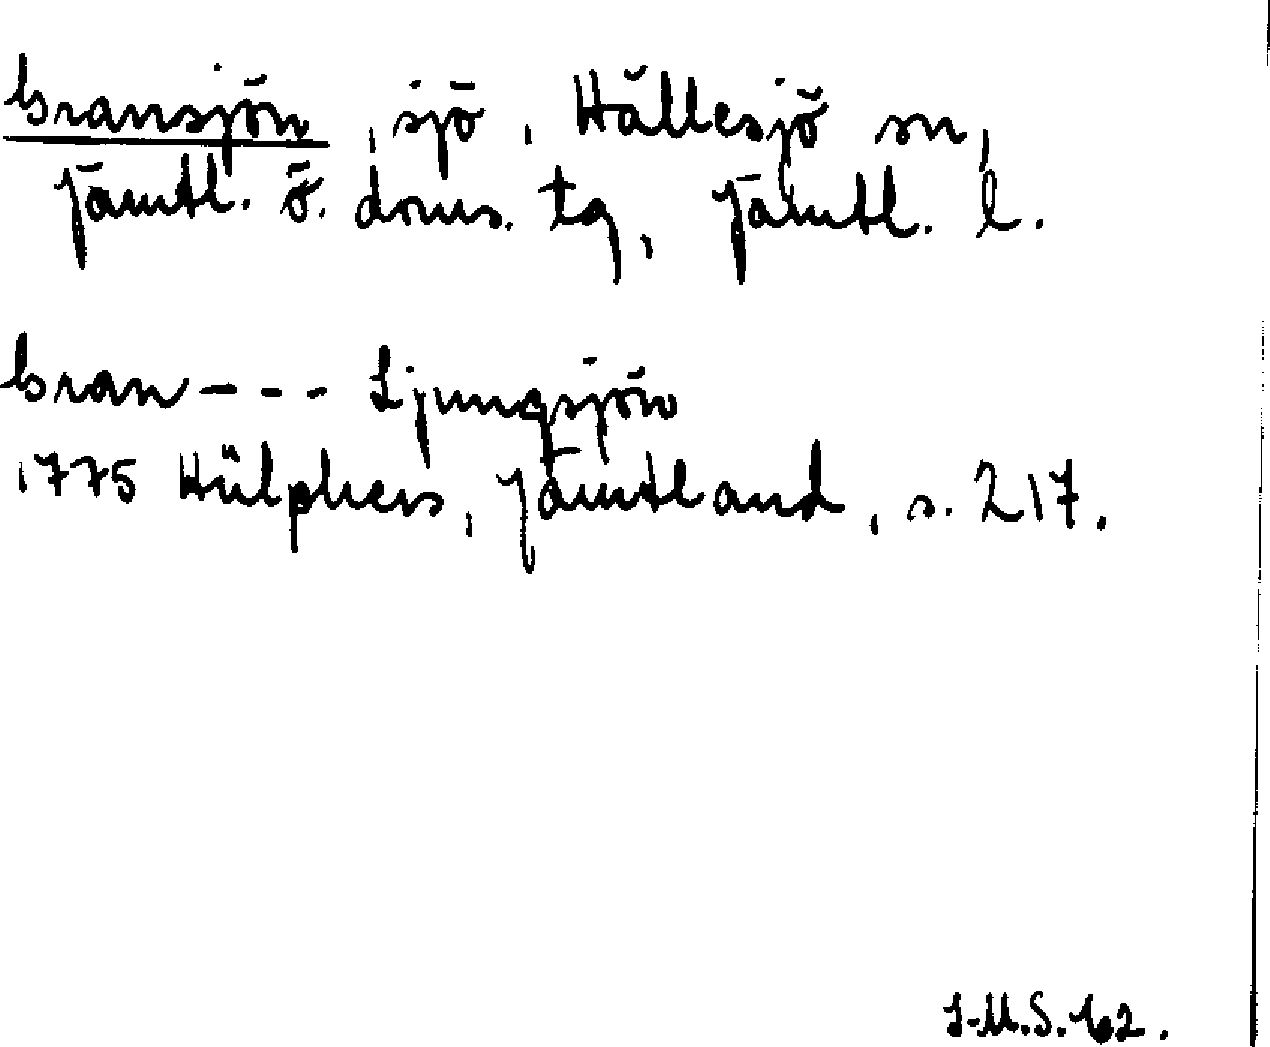 Gransjön, sjö, Hällesjö sn,
Jämtl. ö. doms. tg, Jämtl. l.
Gran--- Ljungsjön
1775 Hülphers, Jämtland, s. 217.
I-M.S. 62.